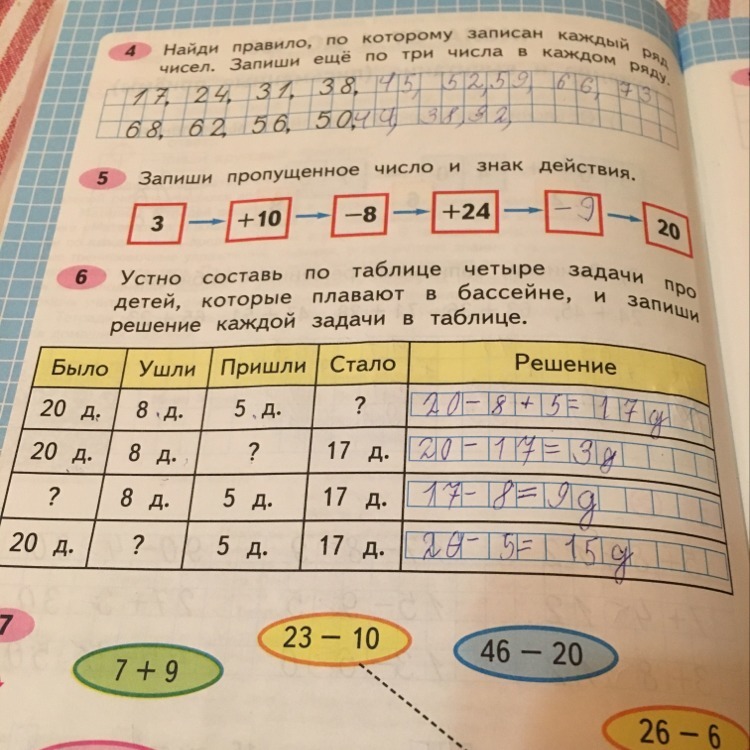 4 Найди правило, по которому записан каждый ряд
чисел. Запиши ещё по три числа в каждом ряду.
17, 24, 31, 38, 45, 52, 59, 66, 73
68, 62, 56, 50, 44, 38, 32,
5 Запиши пропущенное число и знак действия.
3 +10 −8 +24 −9 20
6 Устно составь по таблице четыре задачи про
детей, которые плавают в бассейне, и запиши
решение каждой задачи в таблице.
Было Ушли Пришли Стало Решение
20 д. 8 д. 5 д. ? 20-8+5=17д
20 д. 8 д. ? 17 д. 20-17=3д
? 8 д. 5 д. 17 д. 17-8=9д
20 д. ? 5 д. 17 д. 20-5=15д
7
7 + 9 23 − 10 46 − 20
26 − 6